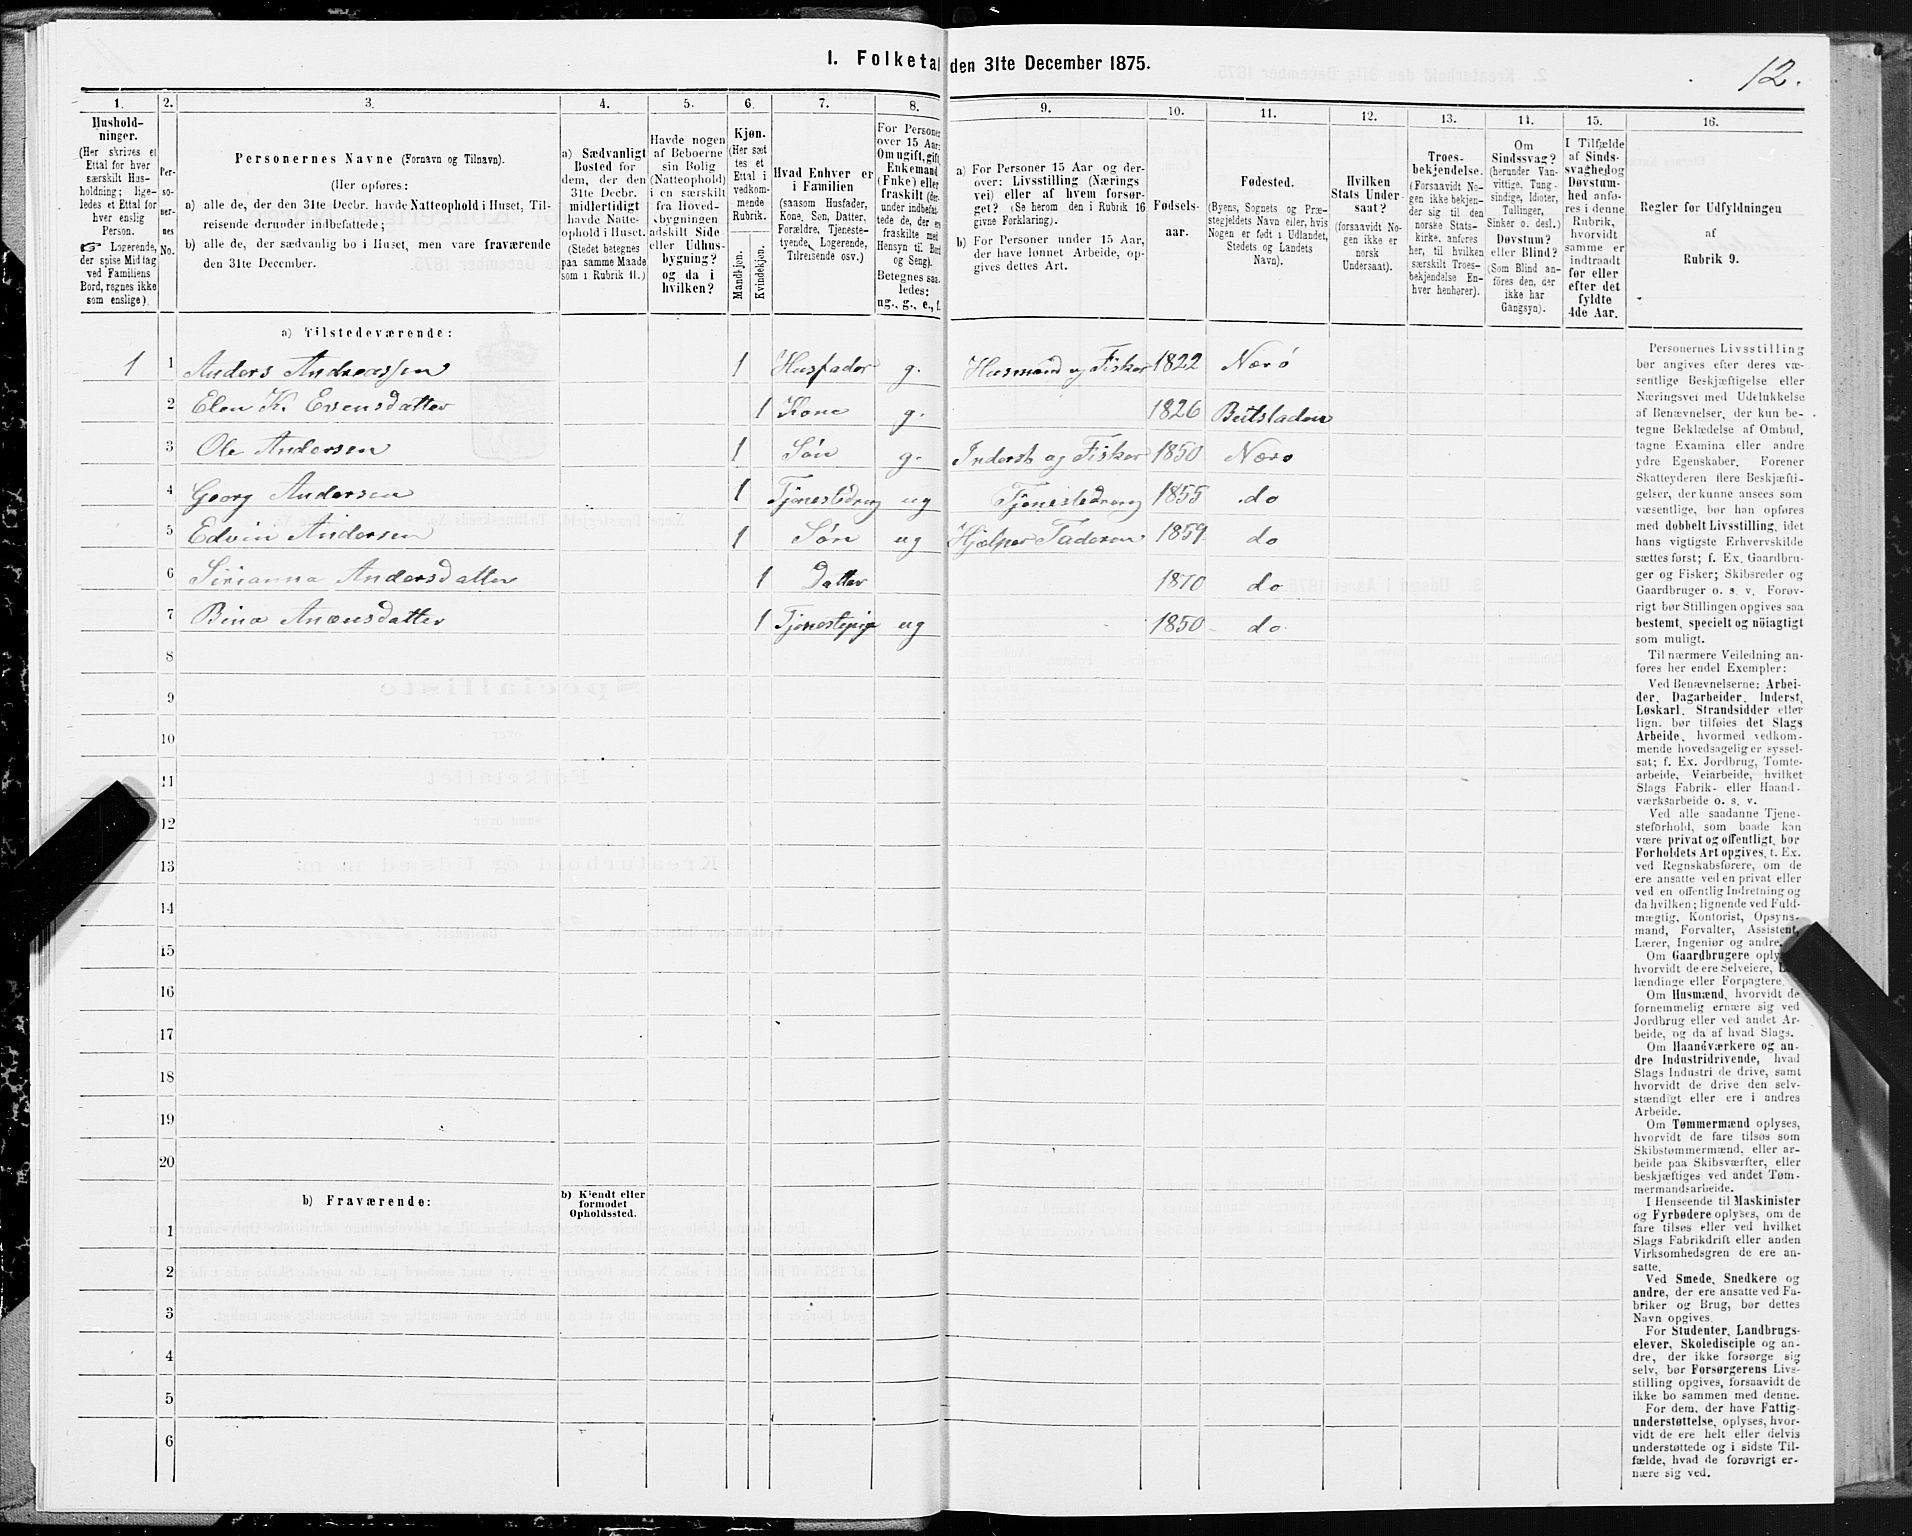 I. Folketal den 31te December 1875.
12.
1. 2. 3. 4. 5. 6. 7. 8. 9. 10. 11. 12. 13. 14. 15. 16.
Hushold-
ninger.
(Her skrives et
Ettal for hver
særskilt Hus-
holdning; lige-
ledes et Ettal for
hver enslig
Person.
☞ Logerende,
der spise Middag
ved Familiens
Bord, regnes ikke
som enslige).
Per-
so-
ner-
nes
No.
Personernes Navne (Fornavn og Tilnavn).
(Her opføres:
a) alle de, der den 31te Decbr. havde Natteophold i Huset, Til-
reisende derunder indbefattede;
b) alle de, der sædvanlig bo i Huset, men vare fraværende
den 31te December.
a) Sædvanligt
Bosted for
dem, der den
31te Decbr.
midlertidigt
havde Natte-
ophold i Huset.
(Stedet betegnes
paa samme Maade
som i Rubrik 11.)
Havde nogen
af Beboerne
sin Bolig
(Natteophold)
i en særskilt
fra Hoved-
bygningen
adskilt Side
eller Udhus-
bygning?
og da i
hvilken?
Kjøn.
(Her sæt-
tes et
Ettal i
vedkom-
mende
Rubrik.
Mandkjøn.
Kvindekjøn.
Hvad Enhver er
i Familien
(saasom Husfader,
Kone, Søn, Datter,
Forældre, Tjeneste-
tyende, Logerende,
Tilreisende osv.)
For Personer
over 15 Aar:
Om ugift, gift,
Enkemand
(Enke) eller
fraskilt (der-
under indbefat-
tede de, der ere
fraskilte med
Hensyn til Bord
og Seng).
Betegnes saa-
ledes:
ug., g., e., f.
a) For Personer 15 Aar og der-
over: Livsstilling (Nærings
vei) eller af hvem forsør-
get? (Se herom den i Rubrik 16
givne Forklaring).
b) For Personer under 15 Aar,
der have lønnet Arbeide, op-
gives dettes Art.
Fødsels-
aar.
Fødested.
(Byens, Sognets og Præ-
stegjeldets Navn eller, hvis
Nogen er født i Udlandet,
Stedets og Landets
Navn).
Hvilken
Stats Under-
saat?
(forsaavidt No-
gen ikke er
norsk
Undersaat).
Troes-
bekjendelse.
(Forsaavidt No-
gen ikke bekjen-
der sig til den
norske Stats-
kirke, anføres
her, til hvilken
særskilt Troes-
bekjendelse En-
hver henhører).
Om
Sindssvag?
(herunder Van-
vittige, Tung-
sindige, Idioter,
Tullinger,
Sinker o. desl.)
Døvstum?
eller Blind?
(Som Blind an-
føres den, der
ikke har
Gangsyn).
I Tilfælde
af Sinds-
svaghed og
Døvstum-
hed anfø-
res i denne
Rubrik,
hvorvidt
samme er
indtraadt
før eller
efter det
fyldte
4de Aar.
Regler for Udfyldningen
af
Rubrik 9.
a) Tilstedeværende:
1 1 Anders Andreassen 1 Husfader g. Husmand og Fisker 1822 Nærø
2 Elen K. Evensdatter 1 Kone g. 1826
3 Ole Andersen 1 Søn g. Inderst og Fisker 1850 Nærø
4 Georg Andersen 1 Tjenestedreng ug Tjenestedreng 1855 do
5 Edvin Andersen 1 Søn ug Hjælper Faderen 1859 do
6 Sirianna Andersdatter 1 Datter 1870 do
7 Bina 1 Tjenestepige ug 1850 do
8
9
10
11
12
13
14
15
16
17
18
19
20
b) Fraværende:
b) Kjendt eller
formodet
Opholdssted.
1
2
3
4
5
6
Personernes Livsstilling
bør angives efter deres væ-
sentlige Beskjæftigelse eller
Næringsvei med Udelukkelse
af Benævnelser, der kun be-
tegne Beklædelse af Ombud,
tagne Examina eller andre
ydre Egenskaber. Forener
Skatteyderen flere Beskjæfti-
gelser, der kunne ansees som
væsentlige, bør han opføres
med dobbelt Livsstilling, idet
hans vigtigste Erhvervskilde
sættes først; f. Ex. Gaardbru-
ger og Fisker; Skibsreder og
Gaardbruger o. s. v. Forøv-
rigt bør Stillingen opgives saa
bestemt, specielt og nöiagtigt
som muligt.
Til nærmere Veiledning an-
føres her endel Exempler:
Ved Benævnelserne: Arbei-
der, Dagarbeider, Inderst,
Løskarl, Strandsidder eller
lign. bør tilføies det Slags
Arbeide, hvormed vedkom-
mende hovedsagelig er syssel-
sat; f. Ex. Jordbrug, Tomte-
arbeide, Veiarbeide, hvilket
Slags Fabrik- eller Haand-
værksarbeide o. s. v.
Ved alle saadanne Tjene-
steforhold, som baade kan
være privat og offentligt, bør
Forholdets Art opgives, f. Ex.
ved Regnskabsførere, om de
ere ansatte ved en privat eller
ved en offentlig Indretning og
da hvilken; lignende ved Fuld-
mægtig, Kontorist, Opsyns-
mand, Forvalter, Assistent,
Lærer, Ingeniør og andre.
Om Gaardbrugere oplys
hvorvidt de ere Selveiere,
lændinge eller Forpagtere.
Om Husmænd, hvorvidt de
fornemmelig ernære sig ved
Jordbrug eller ved andet Ar-
beide, og da af hvad Slags.
Om Haandværkere og an-
dre Industridrivende, hvad
Slags Industri de drive, samt
hvorvidt de drive den selv-
stændigt eller ere i andres
Arbeide.
Om Tømmermænd oplyses,
hvorvidt de fare tilsøs som
Skibstømmermænd, eller ar-
beide paa Skibsværfter, eller
beskjæftiges ved andet Tøm-
mermandsarbeide.
I Henseende til Maskinister
og Fyrbødere oplyses, om de
fare tilsøs eller ved hvilket
Slags Fabrikdrift eller anden
Virksomhedsgren de ere an-
satte.
Ved Smede, Snedkere og
andre, der ere ansatte ved Fa-
briker og Brug, bør dettes
Navn opgives.
For Studenter, Landbrugs-
elever, Skoledisciple og an-
dre, der ikke forsørge sig
selv, bør Forsørgerens Livs-
stilling opgives, forsaavidt de
ikke bo sammen med denne.
For dem, der have Fattig-
understøttelse, oplyses, hvor-
vidt de ere helt eller delvis
understøttede og i sidste Til-
fælde, hvad de forøvrigt er-
nære sig ved.